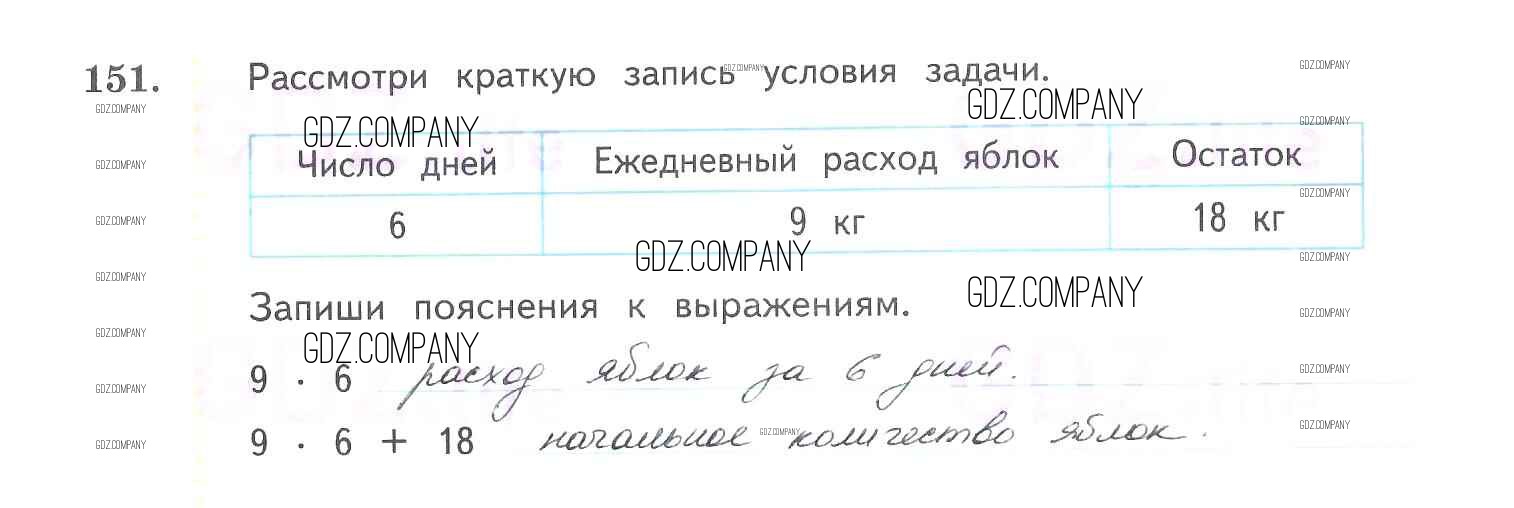 151. Рассмотри краткую запись условия задачи.
GDZ.COMPANY
GDZ.COMPANY
GDZ.COMPANY
GDZ.COMPANY
GDZ.COMPANY
GDZ.COMPANY
GDZ.COMPANY
Число дней Ежедневный расход яблок Остаток
GDZ.COMPANY
GDZ.COMPANY
6 9 кг 18 кг
GDZ.COMPANY
GDZ.COMPANY
GDZ.COMPANY
GDZ.COMPANY
GDZ.COMPANY
Запиши пояснения к выражениям.
GDZ.COMPANY
GDZ.COMPANY
GDZ.COMPANY
9 · 6 расход яблок за 6 дней.
GDZ.COMPANY
GDZ.COMPANY
9 · 6 + 18 начальное количество яблок.
GDZ.COMPANY
GDZ.COMPANY
GDZ.COMPANY